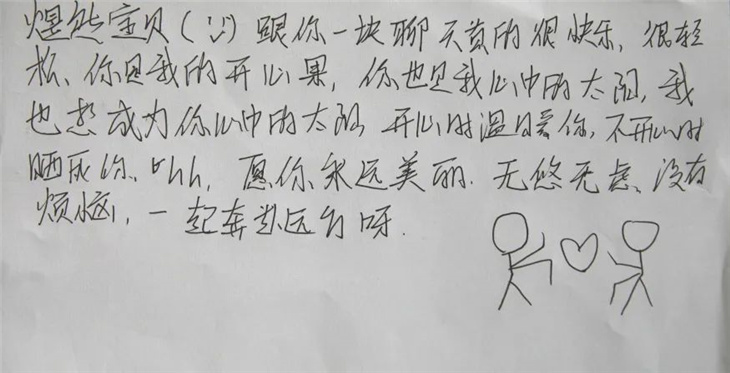 煜然宝贝(  )跟你一块聊天真的很快乐，很轻
松、你是我的开心果，你也是我心中的太阳，我
也想成为你心中的太阳 开心时温暖你，不开心时
晒死你、哈哈，愿你永远美丽.无悠无虑、没有
烦恼，一起奔赴远方呀.